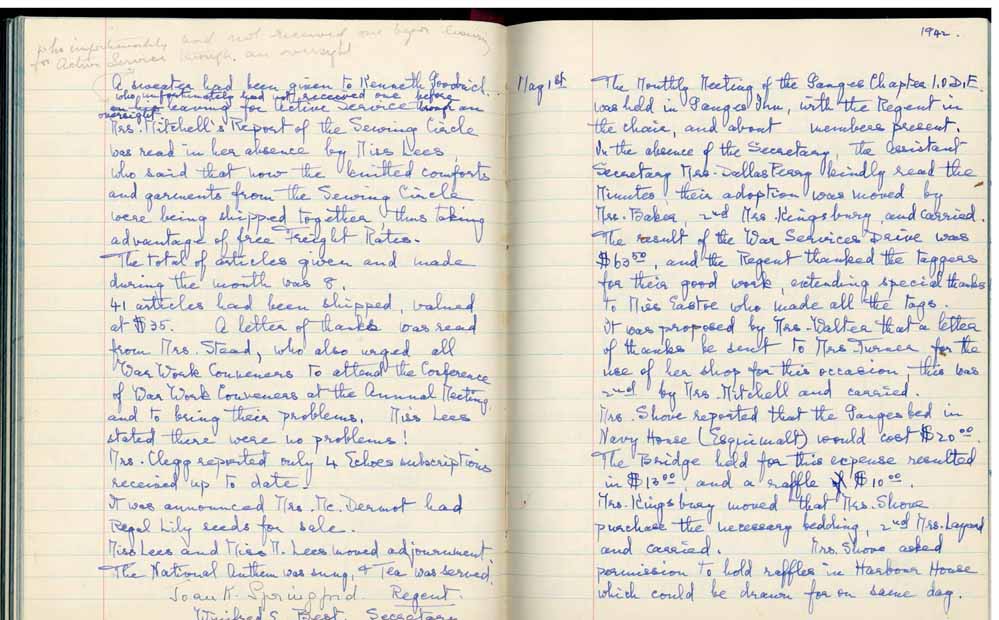 who importunately and not received one before leaving
for Active Service through an oversight
A sweater had been given to Kenneth Goodrich
who importunately had not received one before
on his leaving for Active Service through an
oversight.
Mrs. Mitchell's Report of the Sewing Circle
was read in her absence by Miss Lees,
who said that now the knitted comforts
and garments from the Sewing Circle
were being shipped together thus taking
advantage of free Freight Rates.
The total of articles given and made
during the month was 8.
41 articles had been shipped, valued
at $35. A letter of thanks was read
from Mrs. Stead, who also urged all
War Work Conveners to attend the Conference
of War Work Conveners at the Annual Meeting,
and to bring their problems. Miss Lees
stated there were no problems!
Mrs. Clegg reported only 4 Echoes subscriptions
received up to date.
It was announced Mrs. Mc. Dermot had
Regal Lily seeds for sale.
Miss Lees and Miss M. Lees moved adjournment.
The National Anthem was sung, & Tea was served.
Joan K. Springford. Regent.
Winifred E. Best. Secretary
1942.
May 1st
The Monthly Meeting of the Ganges Chapter I.O.D.E.
was held in Ganges Inn, with the Regent in
the chair, and about members present.
In the absence of the Secretary, the assistant
Secretary Mrs. Dallas Perry kindly read the
Minutes, their adoption was moved by
Mrs. Baker, 2nd Mrs. Kingsbury, and carried.
The result of the War Services Drive was
$63 50, and the Regent thanked the taggers
for their good work, extending special thanks
to Miss Eastoe who made all the tags.
It was proposed by Mrs. Walter that a letter
of thanks be sent to Mrs Turner for the
use of her shop for this occasion, this was
2nd by Mrs. Mitchell and carried.
Mrs. Shove reported that the Ganges bed in
Navy House (Esquimalt) would cost $20 00.
The Bridge held for this expense resulted
in $13 00, and a raffle $10 00.
Mrs. Kingsbury moved that Mrs. Shove
purchase the necessary bedding, 2nd Mrs. Layard
and carried. Mrs. Shove asked
permission to hold raffles in Harbour House
which could be drawn for on same day.